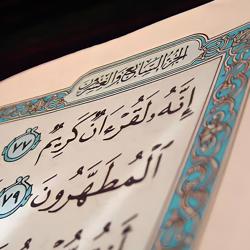 الجزء السابع والعشرون
إِنَّهُۥ لَقُرْءَانٌ كَرِيمٌ ٧٧
ٱلْمُطَهَّرُونَ ٧٩